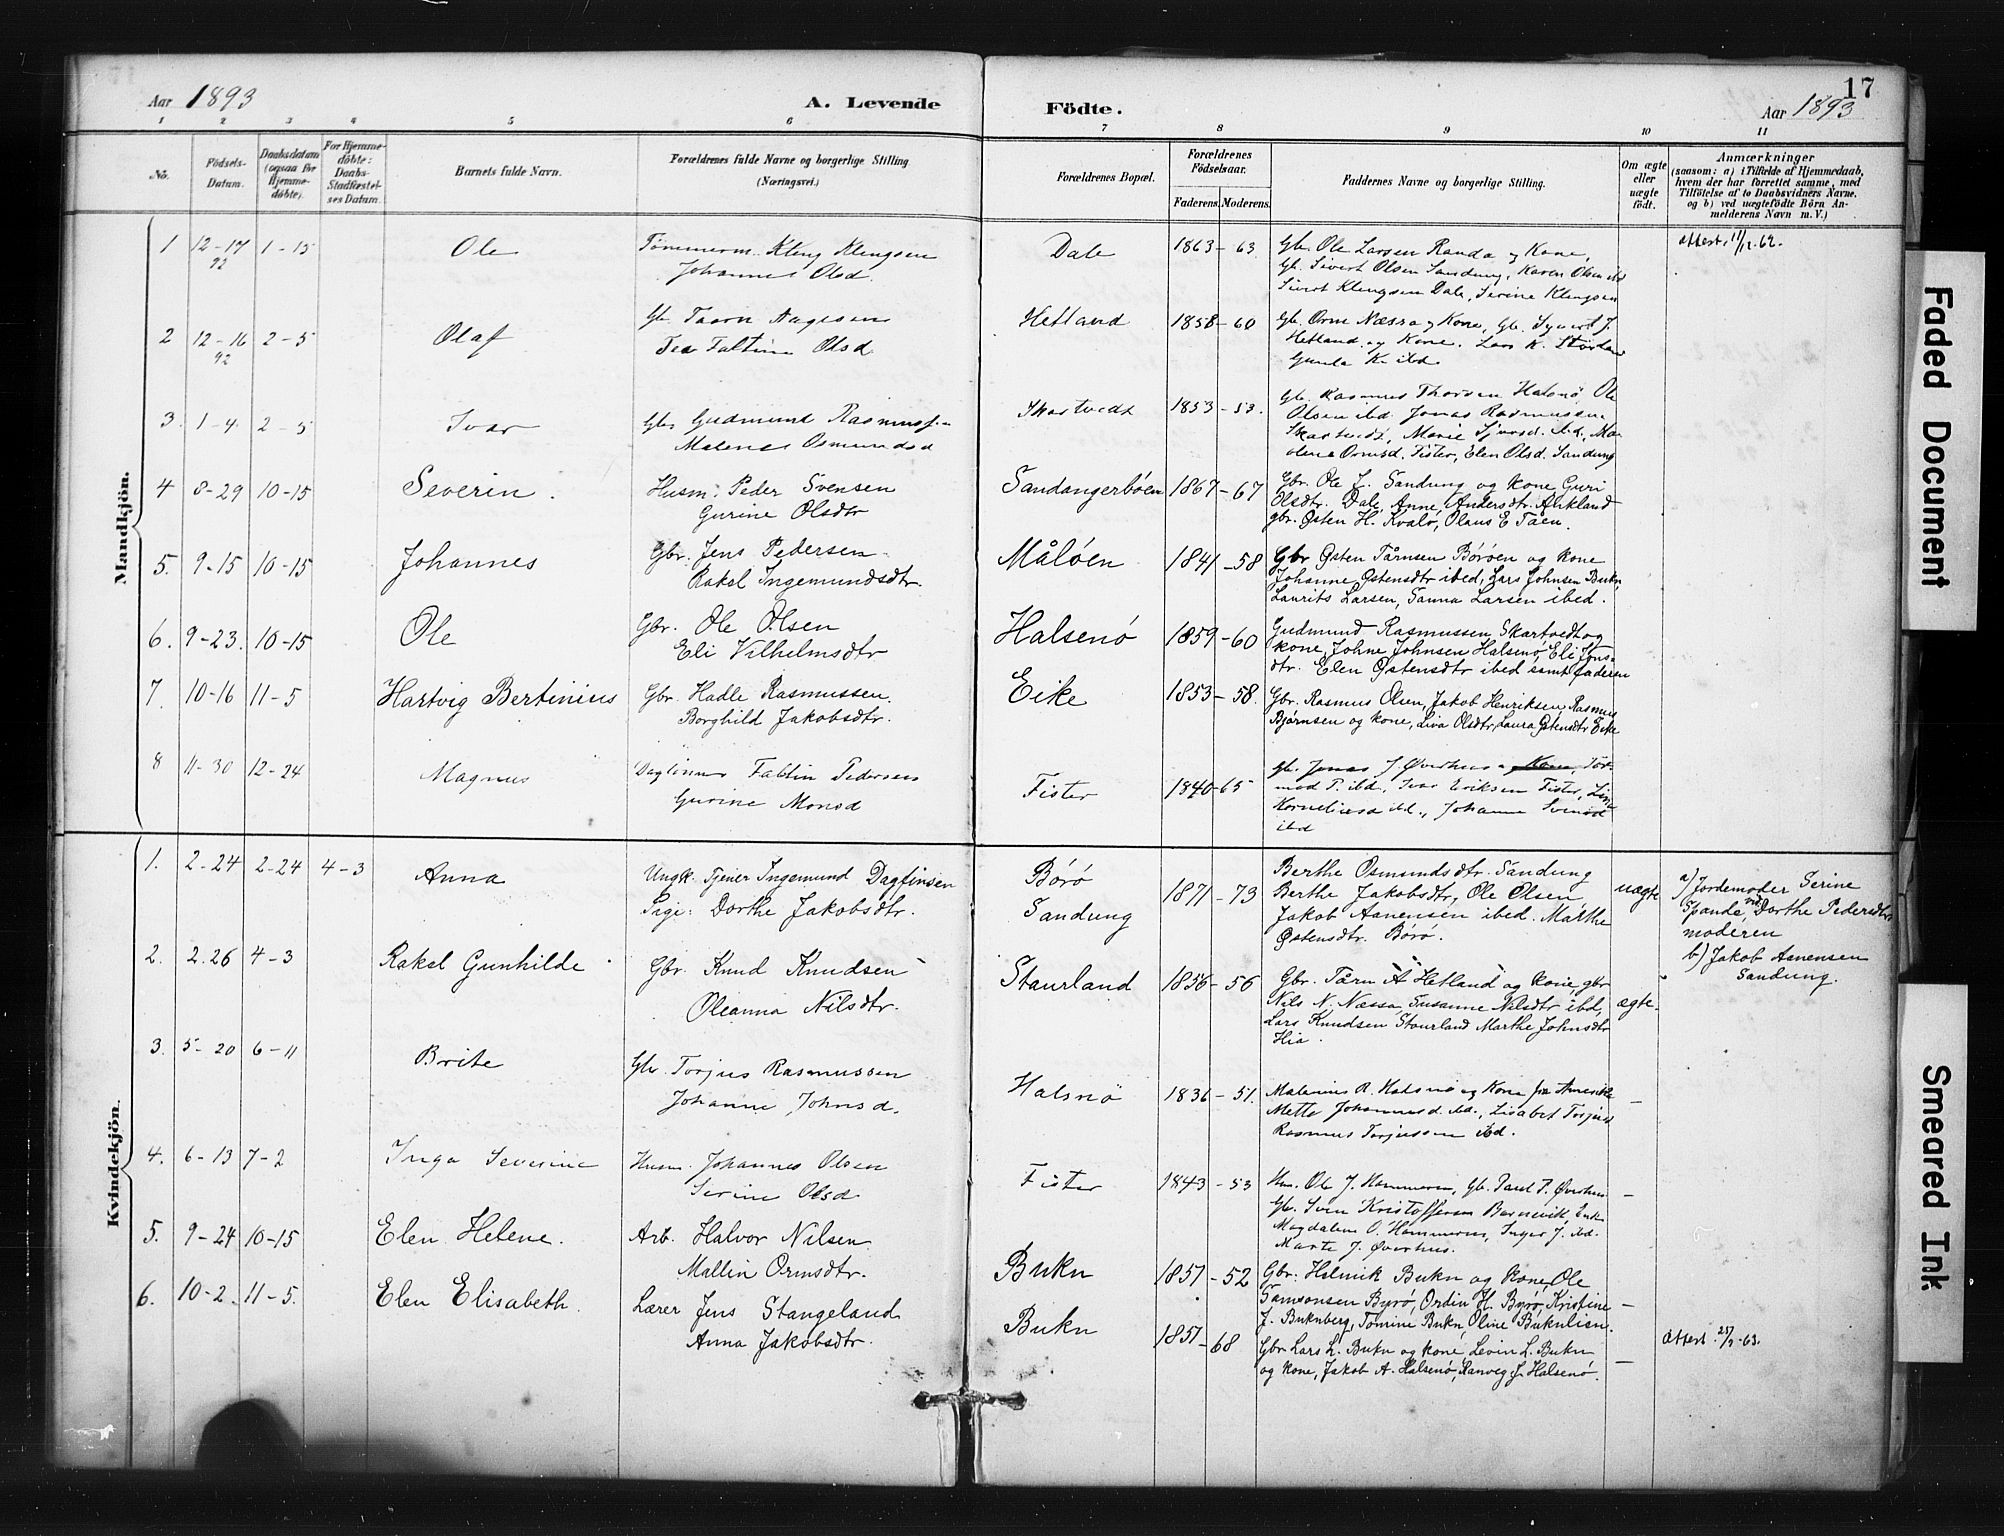 17
Aar 1893
A. Levende
Födte.
Aar 1893
1 2 3 4 5 6 7 8 9 10 11
No.
Födsels-
Datum.
Daabsdatum
(ogsaa for
Hjemme-
döbte).
For Hjemme-
döbte:
Daabs-
Stadfæstel-
ses Datum.
Barnets fulde Navn.
Forældrenes fulde Navne og borgerlige Stilling
(Næringsvei.)
Forældrenes Bopæl.
Forældrenes
Födselsaar.
Faderens. Moderens.
Faddernes Navne og borgerlige Stilling.
Om ægte
eller
uægte
födt.
Anmærkninger
(saasom: a) i Tilfælde af Hjemmedaab,
hvem der har forrettet samme, med
Tilföielse af to Daabsvidners Navne.
og b) ved uægtefödte Börn An-
melderens Navn m. V.)
Mandkjön.
1 12-17 92 1-15 Ole
Tömmerm. Kleng Klengsen
Johannes Olsd.
Dale 1863-63
Gb. Ole Larsen Randa og Kone,
Gb. Sivert Olsen Sandung, Karen Olsen ibd
Sivert Klengsen Dale, Serine Klengsen
Attest. 11/12.62.
2 12-16 92 2-5 Olaf
Gb. Taarn Aagesen
Tea Faltine Olsd
Hetland 1858-60
Gb. Orm Næssa og Kone, Gb. Syvert J.
Hetland og Kone. Lars K.
Gunla K. ibd.
3. 1-4. 2-5 Ivar
Gbr Gudmund Rasmuss.
Malene Osmundsd
Skartvedt 1853-53.
Gb. Rasmus Thorsen Halsnö, Ole
Olsen ibd. Jonas Rasmussen
Skartvedt, Marie Sjursd. ibd, Ma-
lene Ormsd. Fister, Elen Olsd. Sandung
4 8-29 10-15 Severin.
Husm. Peder Svensen
Gurine Olsdtr
Sandangerböen 1867-67
Gbr. Ole L. Sandung og kone Guri
Olsdtr. Dale, Anne Andersdtr. Aukland
gbr. Østen H. Kvalø, Olaus E Tåen.
5. 9-15 10-15 Johannes
Gbr. Jens Pedersen
Rakel Ingemundsdtr.
Måløen 1841-58
Gbr Østen Tårnsen Börøen og kone
Johanne Østensdtr ibed, Lars Johnsen Bukn,
Laurits Larsen, Sanna Larsen ibed.
6. 9-23. 10-15 Ole
Gbr. Ole Olsen
Eli Vilhelmsdtr
Halsenö 1859-60
Gudmund Rasmussen Skartvedt og
kone, Johne Johnsen Halsenö, Eli Jens-
dtr. Elen Østensdtr ibed samt faderen
7. 10-16 11-5 Hartvig Bertinius
Gbr. Hadle Rasmussen.
Borghild Jakobsdtr.
Eike 1853-58.
Gbr. Rasmus Olsen, Jakob Henriksen, Rasmus
Bjørnsen og kone, Liva Olsdtr, Laura Østensdtr Eike
8 11-30 12-24 Magnus
Dagl Faltin Pedersen
Gurine Monsd
Fister 1840-65
Gb. Jonas J. Øverhus og Kone, Tor-
mod P. ibd, Ivar Eriksen Fister, Line
Korneliusd ibd., Johanne Svensd
ibd
Kvindekjön.
1. 2-24 2-24 4-3 Anna
Ungk. Tjener Ingemund Dagfinsen
Pige: Dorthe Jakobsdtr.
Börö
Sandung
1871-73
Berthe Osmundsdtr. Sandung
Berthe Jakobsdtr, Ole Olsen,
Jakob Aanensen ibed. Marthe
Østensdtr. Börö.
uægte
a) Jordemoder Serine
Spande, ved Dorthe Pedersdtr
moderen
b) Jakob Aanensen
Sandung.
2. 2.26 4-3 Rakel Gunhilde
Gbr. Knud Knudsen
Oleanna Nilsdtr.
Staurland 1856-56
Gbr. Tårn A Hetland og kone, gbr
Nils N. Næssa, Susanne Nilsdtr ibd,
Lars Knudsen Staurland Marthe Johnsdtr
Hia.
ægte.
3. 5-20 6-11 Brite
Gbr. Torjus Rasmussen
Johanne Johnsd.
Halsnö 1836-51.
Malenius R. Halsnö og Kone fra Amerika
Mette Johannesd. ibd., Lisabet Torjus
Rasmus Torjussen ibd.
—
4. 6-13 7-2 Inga Severine
Husm. Johannes Olsen
Serine Olsd
Fister 1843-53
Hm. Ole J. Hammeren, Gb. Paul P. Øverhus
Gb. Sven Kristoffersen Barnevik, Enke
Magdalene O. Hammeren, Inger J. ibd.
Marte J. Øverhus.
—
5. 9-24 10-15 Elen Helene.
Arb. Halvor Nilsen
Mallin Ormsdtr.
Bukn 1851-52
Gbr. Helmik Bukn og kone, Ole
Samsonsen Byrö, Ordin H. Byrö, Kristine
J. Buknberg, Tomine Bukn, Oline Buknlien.
—
6. 10-2. 11-5. Elen Elisabeth.
Lærer Jens Stangeland
Anna Jakobsdtr.
Bukn 1851-68
Gbr Lars L. Bukn og kone Levin L. Bukn
og kone, Jakob A. Halsenö, Ranveg J. Halsenö.
—
Attest. 25/9-63.
Faded Document
Smeared Ink